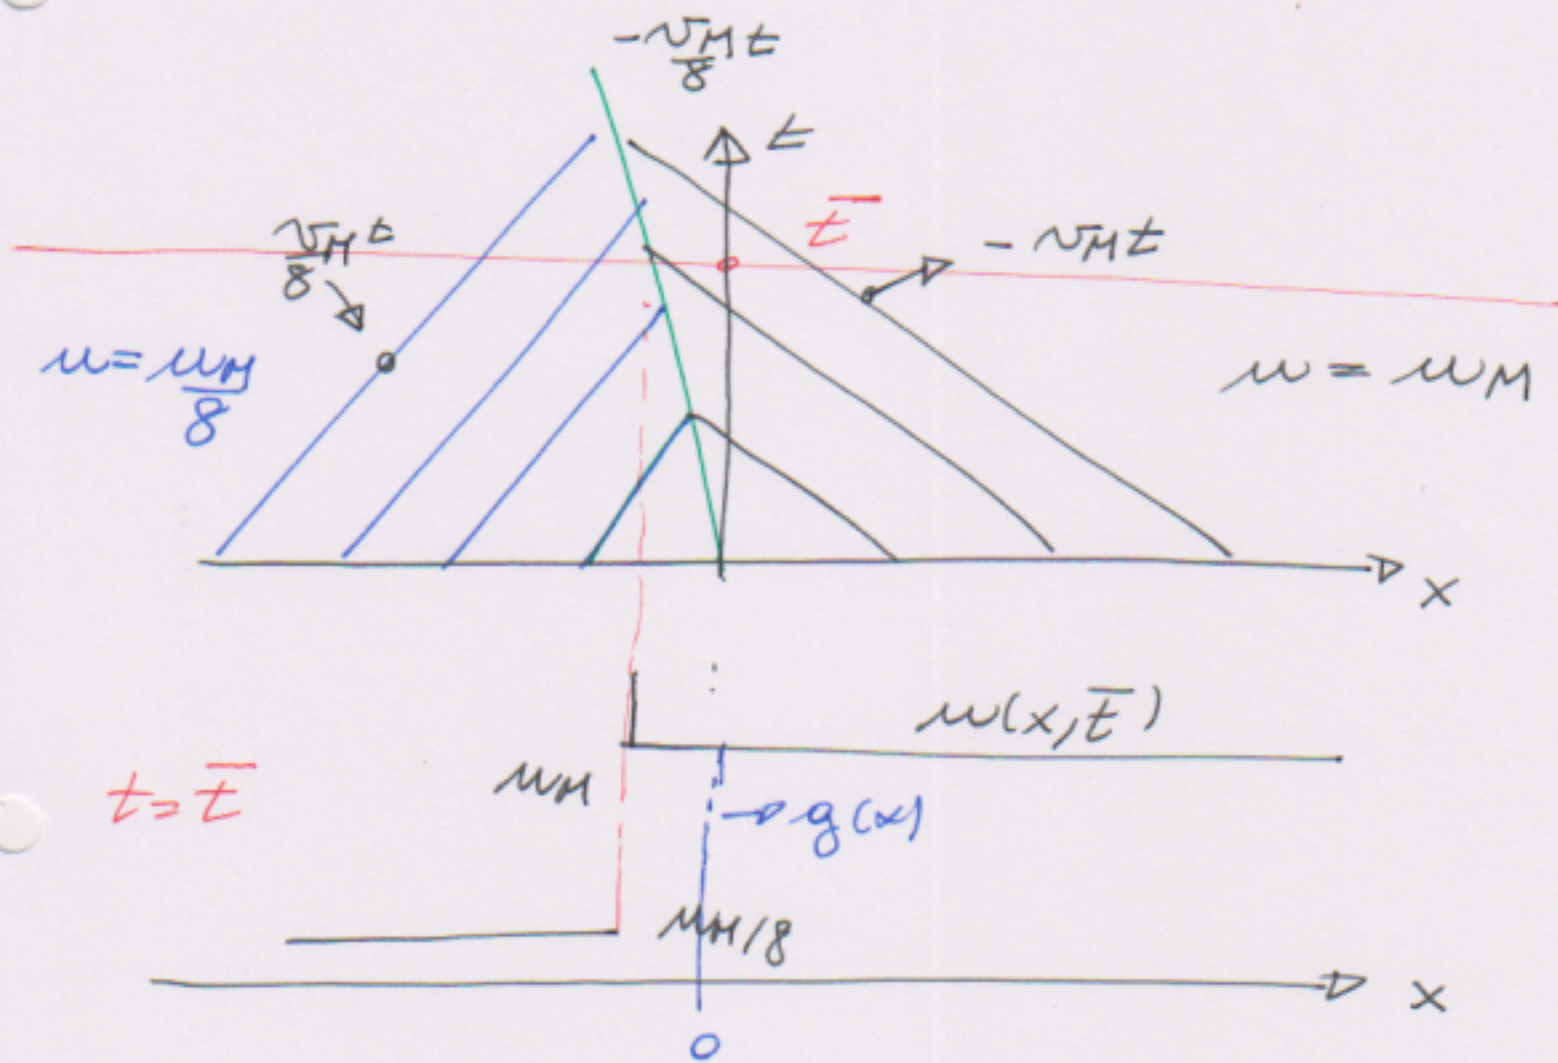 -v_M t/8
t
t̄
v_M t/8
- v_M t
u = u_M/8
u = u_M
x
u(x, t̄)
u_M
t = t̄
→ g(x)
u_M/8
x
0